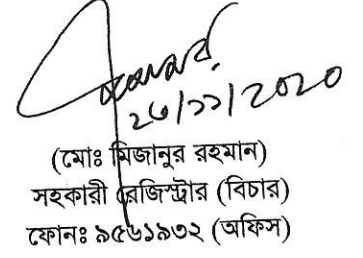 ২৬/১১/২০২০
(মোঃ মিজানুর রহমান)
সহকারী রেজিস্ট্রার (বিচার)
ফোনঃ ৯৫৬১৯৩২ (অফিস)